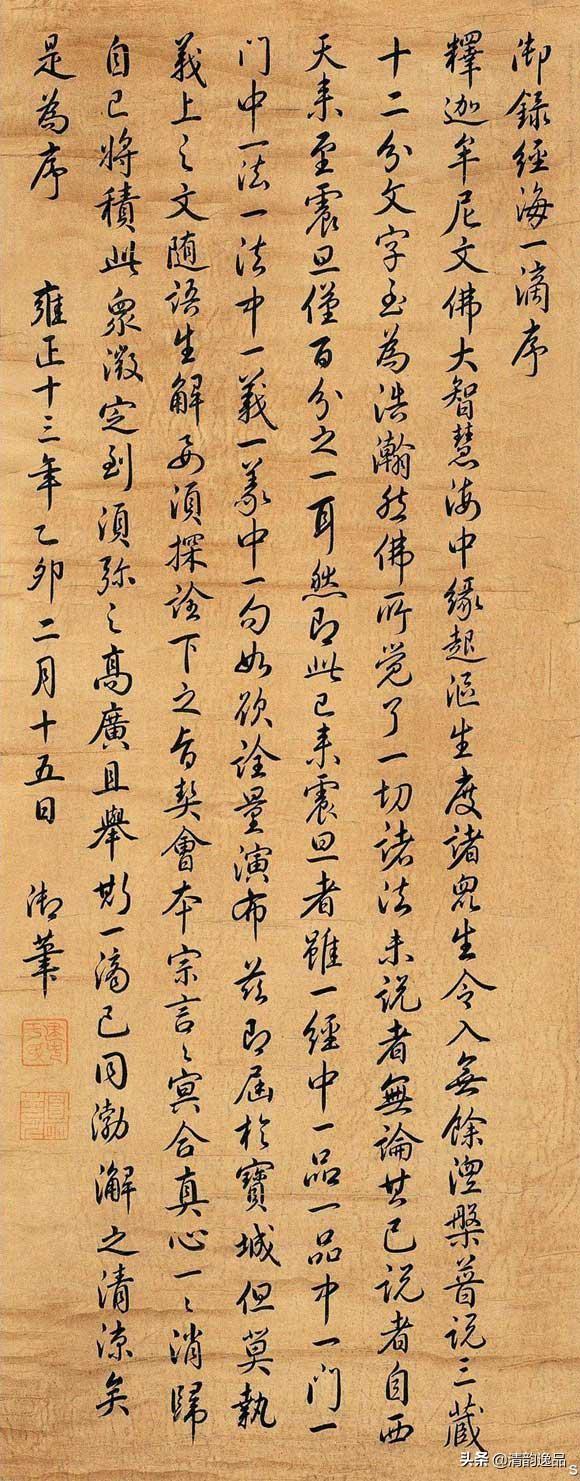 御錄經海一滴序
釋迦牟尼文佛大智慧海中緣起漚生度諸眾生令入無餘湼槃普說三藏
十二分文字至為浩瀚然佛所覺了一切諸法未說者無論其已說者自西
天来至震旦僅百分之一耳然即此已来震旦者雖一經中一品一品中一門一
门中一法一法中一義一義中一句如欲詮量演布茲即屆於寶城但莫執
義上之文随語生解要須探詮下之旨契會本宗言々冥合真心一々消歸
自己將積此眾微定到須弥之高廣且舉斯一滴已同渤澥之清涼矣
是為序 雍正十三年乙卯二月十五日 御筆
头条 @清韵逸品